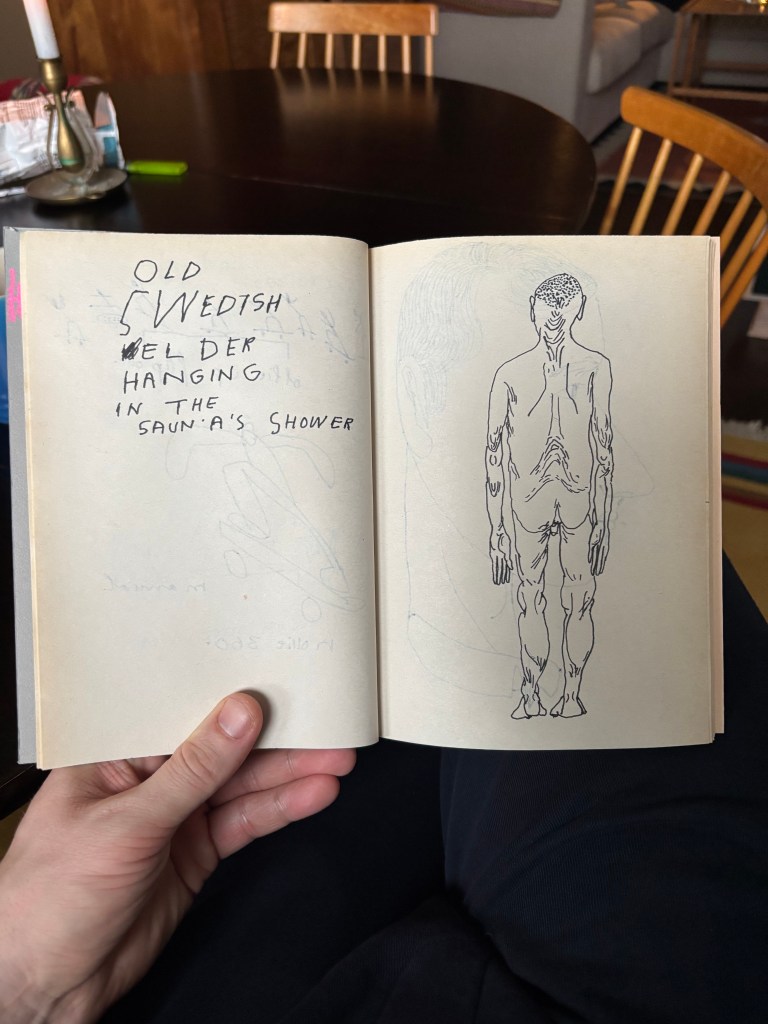 OLD
SWEDISH
ELDER
HANGING
IN THE
SAUNA'S SHOWER